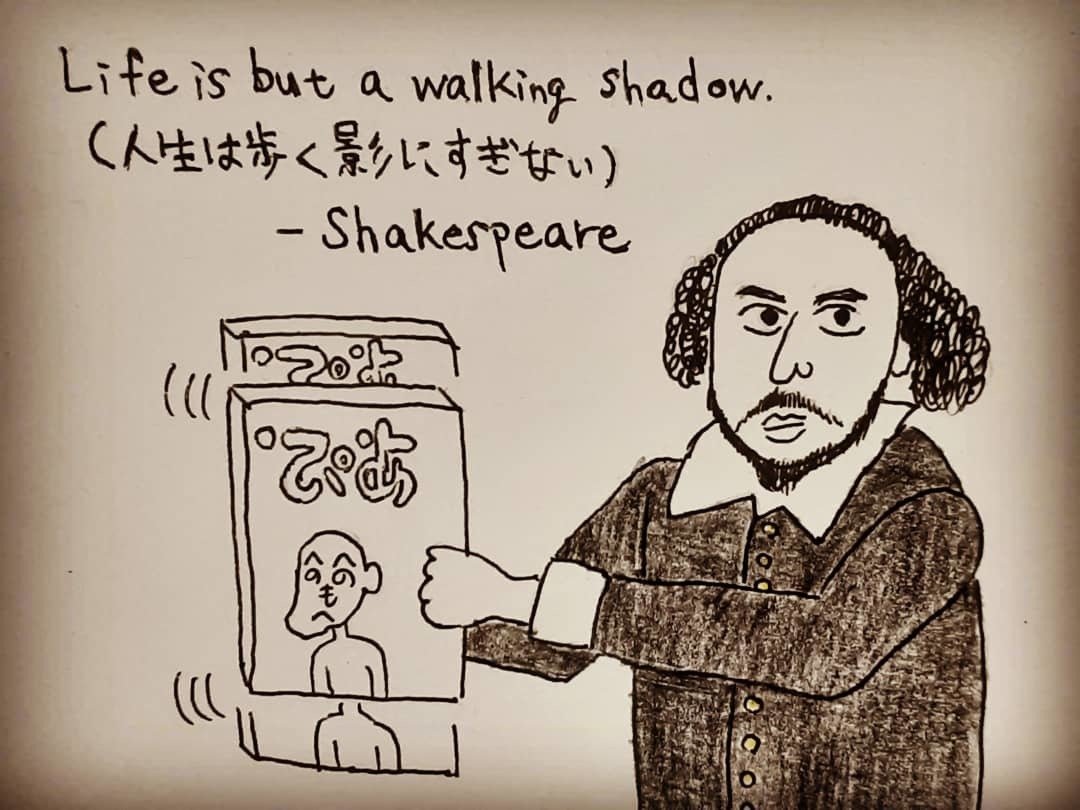 Life is but a walking shadow.
(人生は歩く影にすぎない)
- Shakespeare
ぴあ
ぴあ